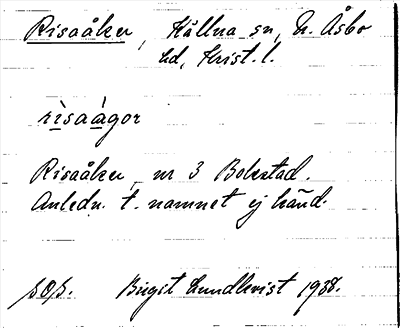 Risaåker, Källna sn, N. Åsbo
hd, Krist. l.
rìsaàgor
Risaåker, nr 3 Bolestad.
Anledn. t. namnet ej känd.
Birgit Lundkvist 1938.